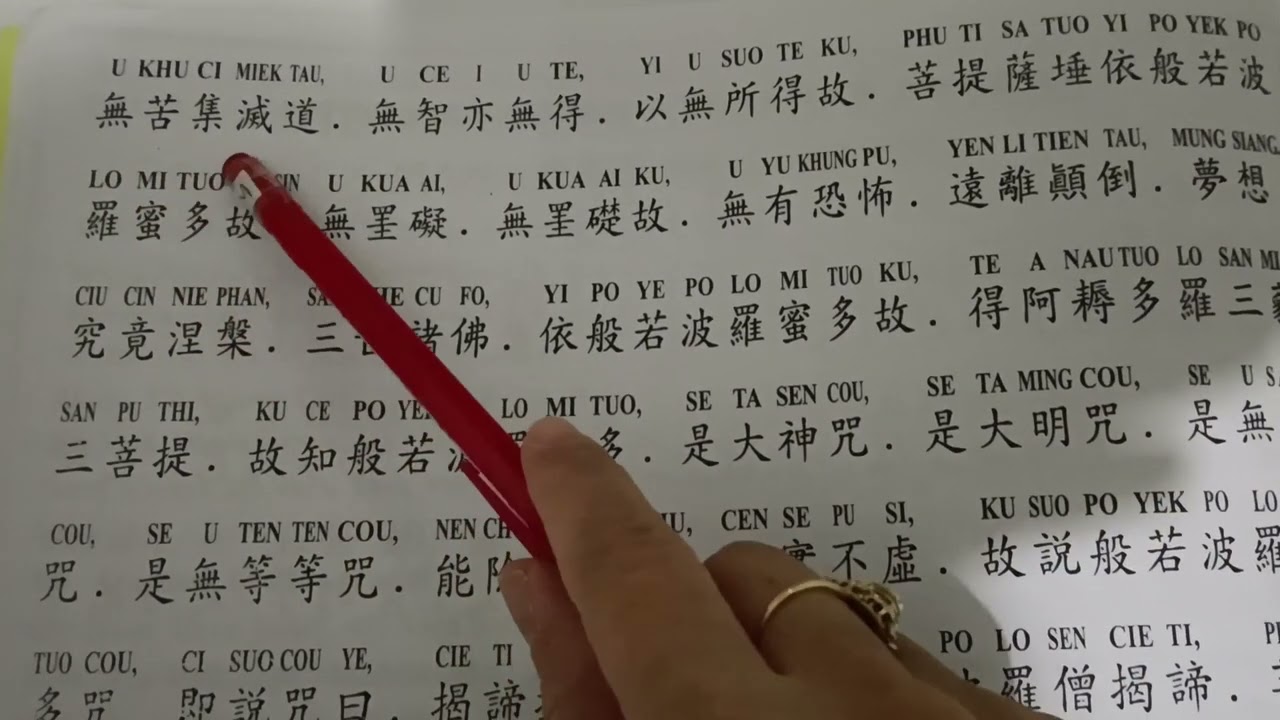 U KHU CI MIEK TAU, U CE I U TE, YI U SUO TE KU, PHU TI SA TUO YI PO YEK PO
無苦集滅道．無智亦無得．以無所得故．菩提薩埵依般若波
LO MI TUO SIN U KUA AI, U KUA AI KU, U YU KHUNG PU, YEN LI TIEN TAU, MUNG SIANG
羅蜜多故 無罣礙．無罣礎故．無有恐怖．遠離顚倒．夢想
CIU CIN NIE PHAN, CU FO, YI PO YE PO LO MI TUO KU, TE A NAU TUO LO SAN MI
究竟涅槃．三世諸佛．依般若波羅蜜多故．得阿耨多羅三藐
SAN PU THI, KU CE PO LO MI TUO, SE TA SEN COU, SE TA MING COU, SE U
三菩提．故知般若波 多．是大神咒．是大明咒．是無
COU, SE U TEN TEN COU, NEN CEN SE PU SI, KU SUO PO YEK PO LO
咒．是無等等咒．能除 實不虛．故說般若波羅
TUO COU, CI SUO COU YE, CIE TI PO LO SEN CIE TI,
多咒 即說咒曰．揭諦 羅僧揭諦．